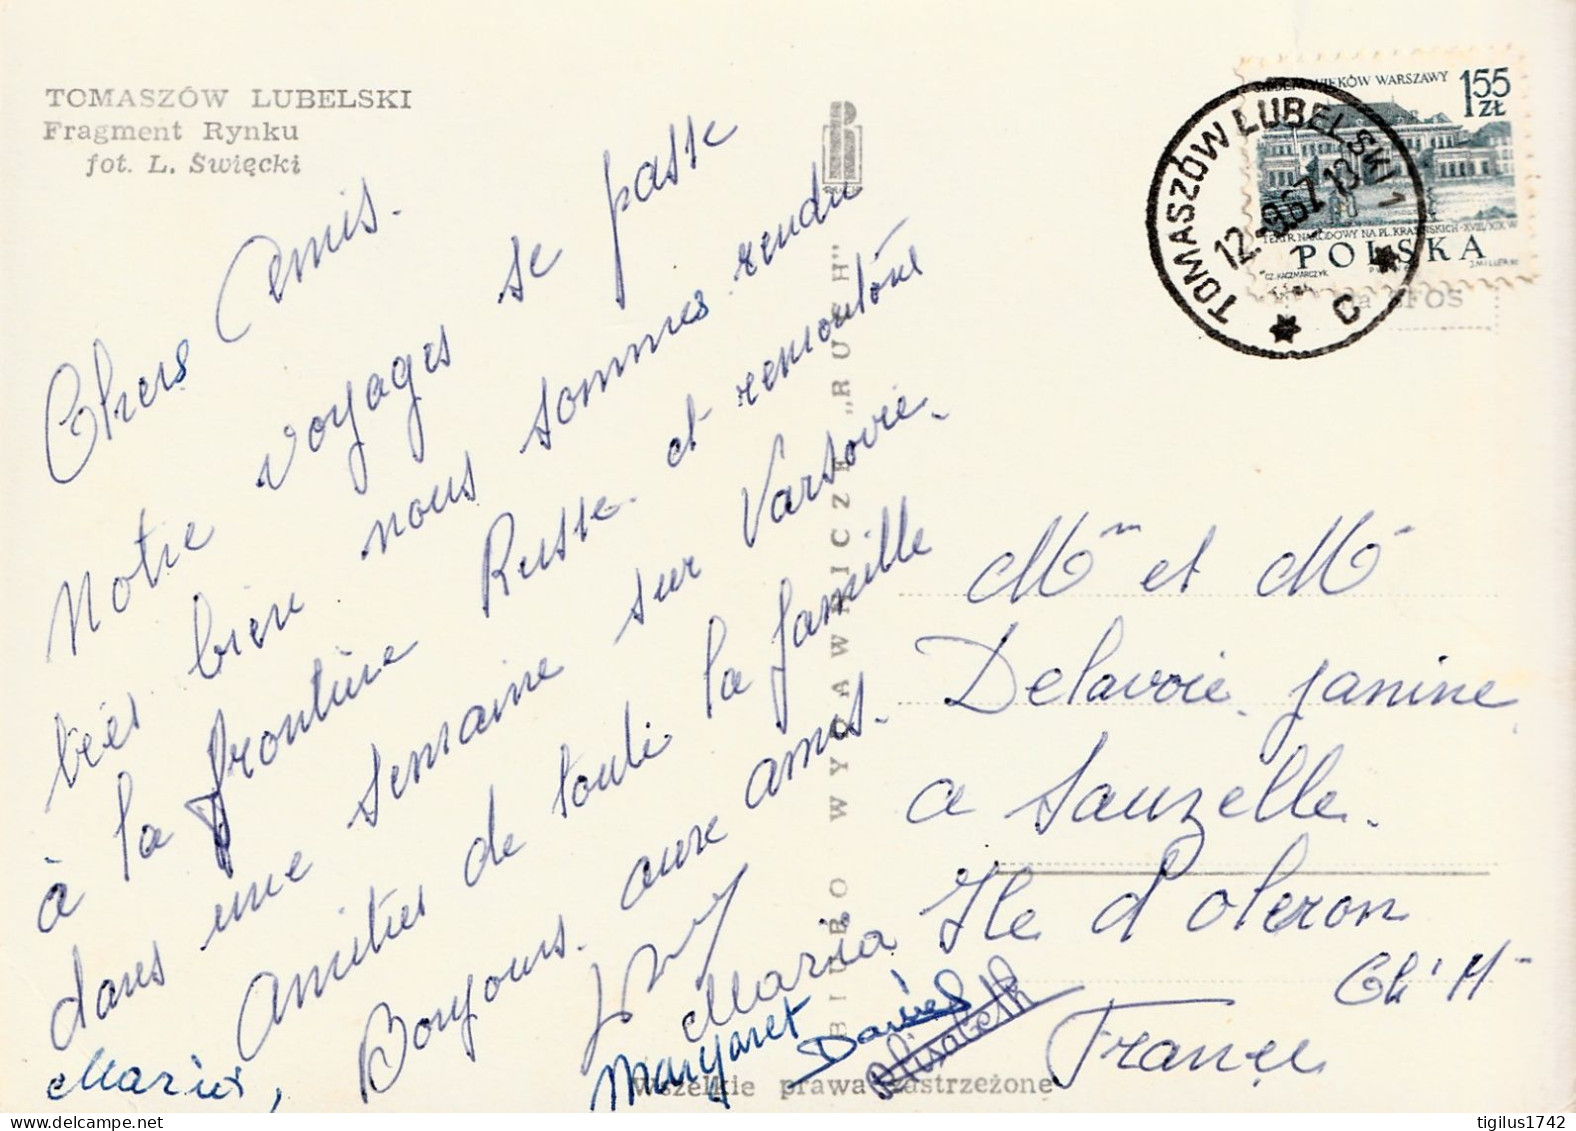 TOMASZÓW LUBELSKI
Fragment Rynku
fot. L. Święcki
Chers Amis.
Notre voyages se passe
très bien nous sommes rendu
à la frontière Russe. et remontons
dans une semaine sur Varsovie.
Amities de toute la famille
Bonjours. aure amis.
Maria
Maria,
Margaret
Daniel
Elisabeth
BIURO WYDAWNICZE „RUCH"
RUCH
Wszelkie prawa zastrzeżone
SIEDEM WIEKÓW WARSZAWY
1,55 ZŁ
TEATR NARODOWY NA PL. KRASIŃSKICH-XVIII/XIX W
POLSKA
CZ. KACZMARCZYK
J. MILLER
TOMASZÓW LUBELSKI 1
12.-9.67.13
C
na SFOS
Mm et Mr
Delavoie Janine
a Sauzelle.
Ile d'oleron
Ch' M-
France
tigilus1742